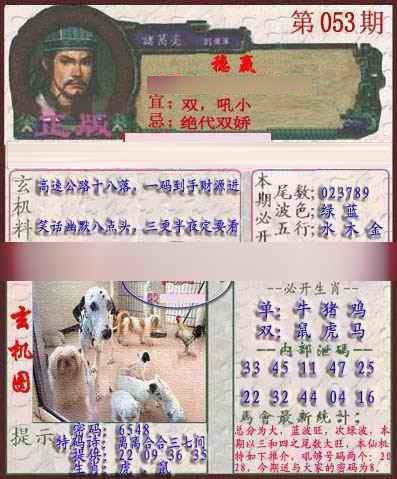 第053期
諸葛亮
稳赢
宜：双，吼小
忌：绝代双娇
正版
玄机料
高速公路十八落，一码到手财源进
笑话幽默八点头，三更半夜定要看
本期必开
尾数：023789
波色：绿 蓝
五行：水 木 金
必开生肖
单：牛 猪 鸡
双：鼠 虎 马
内部泄码
33 45 11 47 25
22 32 44 04 16
馬會最新統計：
总分为大，蓝波旺，次绿波，本
期以三和四之尾数大旺，本仙机
特如下推介，吼够号码两个：20
28，今期送与大家的密码为8.
玄机图
提示
密码：6548
特码诗：离离合合三七间
提供：22 09 36 35
生肖：虎、鼠